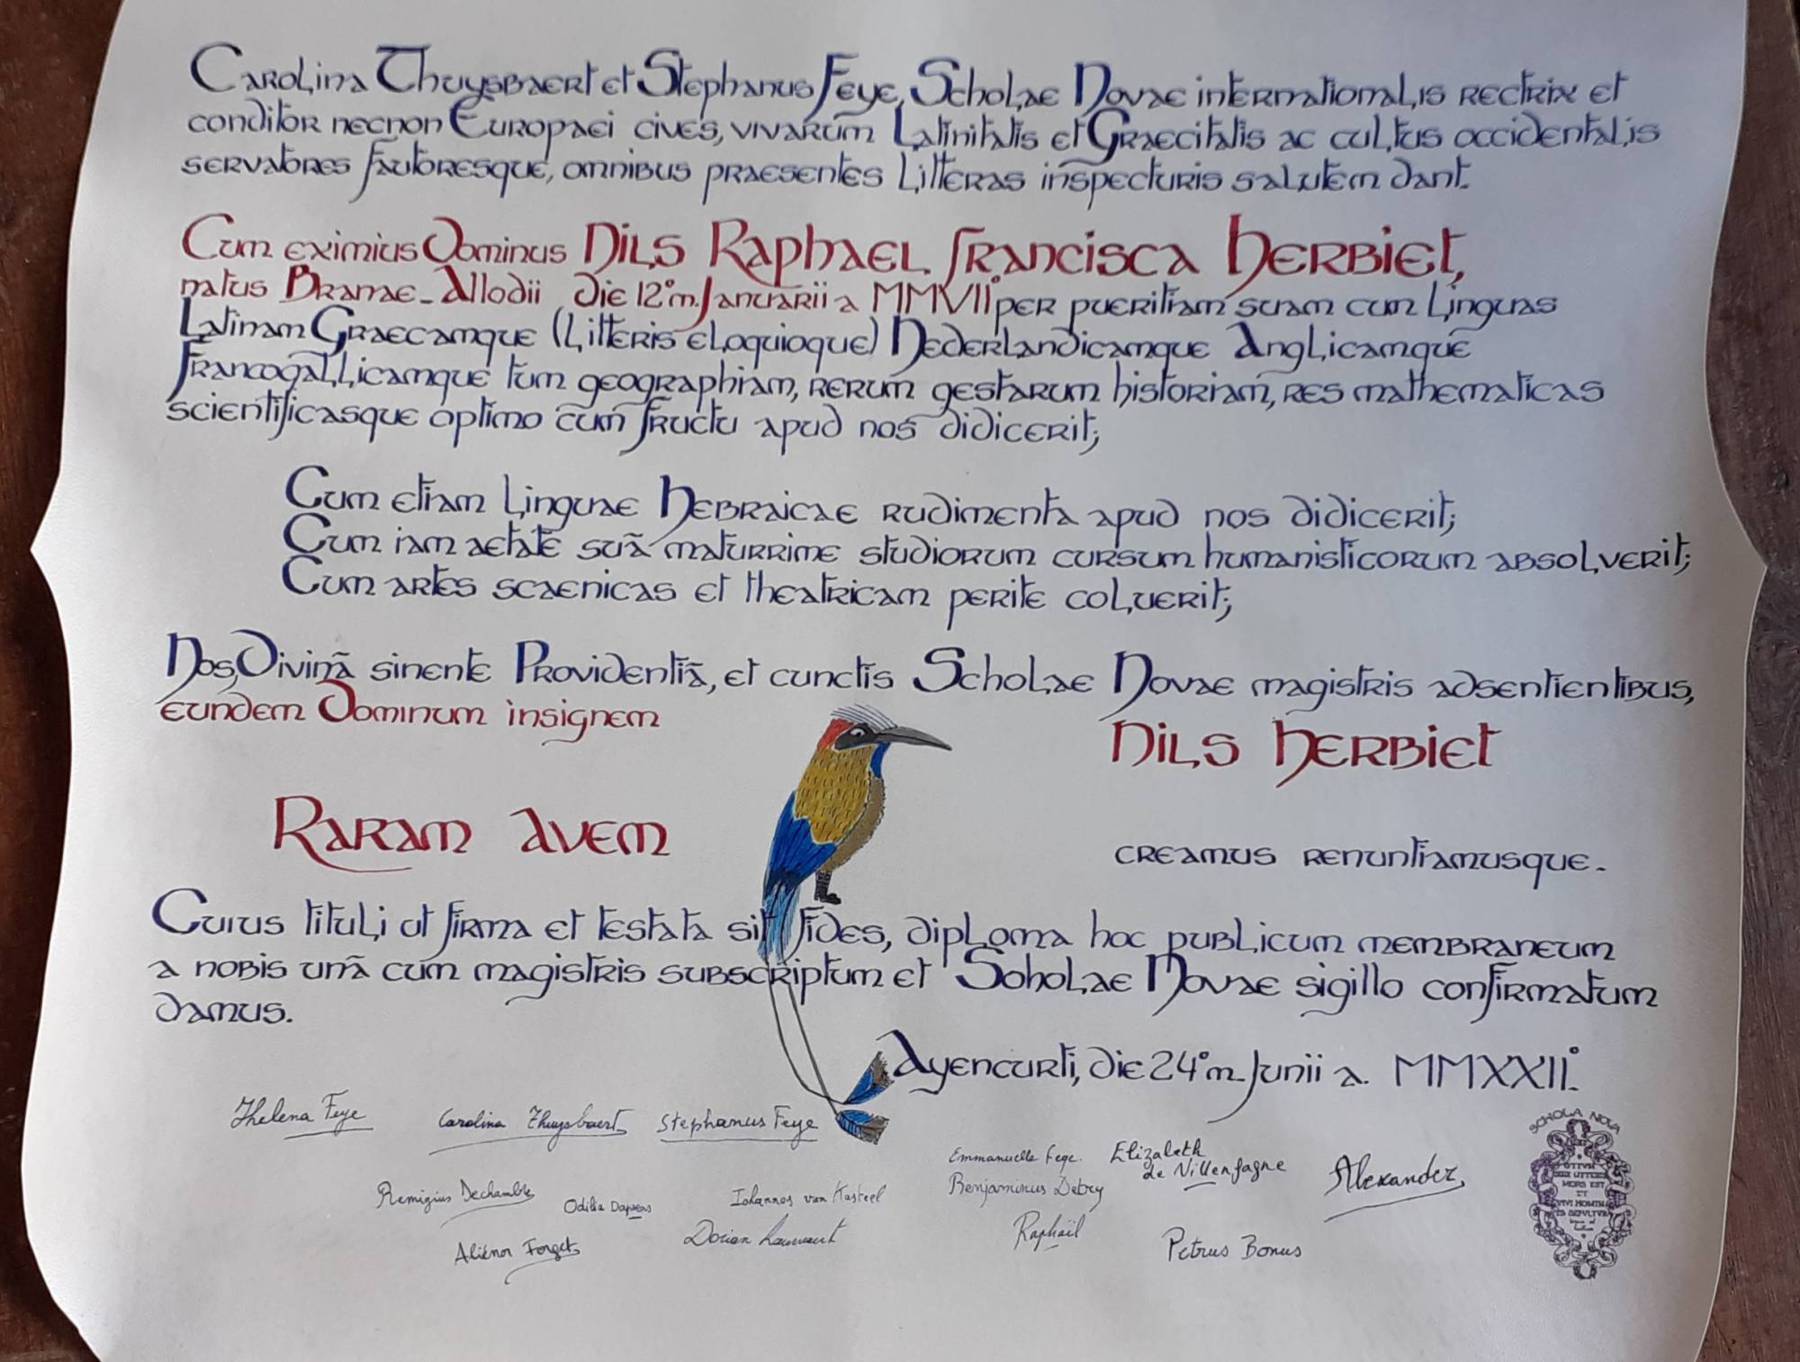 Carolina Thuysbaert et Stephanus Feye, Scholae Novae internationalis rectrix et
conditor necnon Europaei cives, vivarum Latinitatis et Graecitatis ac cultus occidentalis
servatores fautoresque, omnibus praesentes litteras inspecturis salutem dant.
Cum eximius Dominus Nils Raphael Francisca Herbiet,
natus Branae-Allodii die 12° m. Januarii a MMVII° per pueritiam suam cum linguas
Latinam Graecamque (litteris eloquioque) Nederlandicamque Anglicamque
Francogallicamque tum geographiam, rerum gestarum historiam, res mathematicas
scientificasque optimo cum fructu apud nos didicerit;
Cum etiam linguae Hebraicae rudimenta apud nos didicerit;
Cum iam aetate suā maturrime studiorum cursum humanisticorum absolverit;
Cum artes scaenicas et theatricam perite coluerit;
Nos, Divinā sinente Providentiā, et cunctis Scholae Novae magistris adsentientibus,
eundem Dominum insignem
Nils Herbiet
Raram Avem
creamus renuntiamusque.
Cuius tituli ut firma et testata sit fides, diploma hoc publicum membraneum
a nobis unā cum magistris subscriptum et Scholae Novae sigillo confirmatum
damus.
Ayencurti, die 24° m. Junii a. MMXXII°.
Thelena Feye
Carolina Thuysbaert
Stephanus Feye
Emmanuelle Feye.
Elizabeth
de Villenfagne
Alexander
Remigius Dechamble
Odilia
Iohannes van Kasteel
Benjaminus Debry
Aliénor Forget
Dorian
Raphaël
Petrus Bonus
SCHOLA NOVA
OTIUM
SINE LITTERIS
MORS EST
ET
VIVI HOMINIS
SEPULTURA